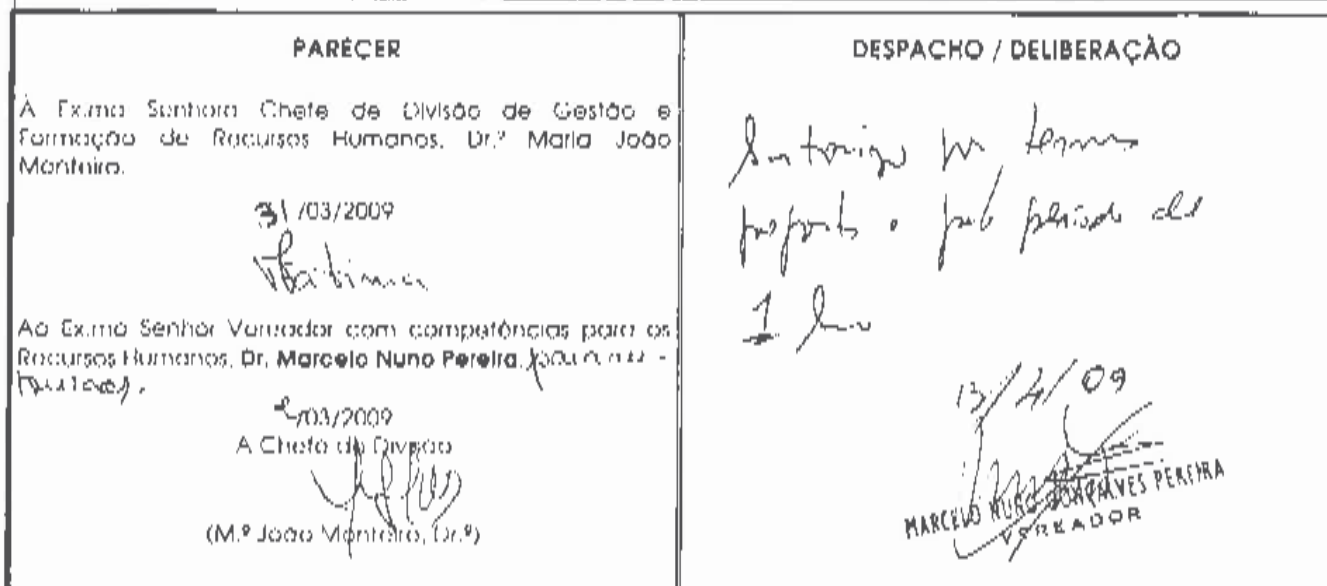 PARECER
À Ex.ma Senhora Chefe de Divisão de Gestão e
Formação de Recursos Humanos, Dr.ª Maria João
Monteiro.
31/03/2009
Ao Ex.mo Senhor Vereador com competências para os
Recursos Humanos, Dr. Marcelo Nuno Pereira, para
/03/2009
A Chefe de Divisão
(M.ª João Monteiro, Dr.ª)
DESPACHO / DELIBERAÇÃO
Autorizo nos termos
propostos e pelo período de
1 ano
13/4/09
MARCELO NUNO GONÇALVES PEREIRA
VEREADOR